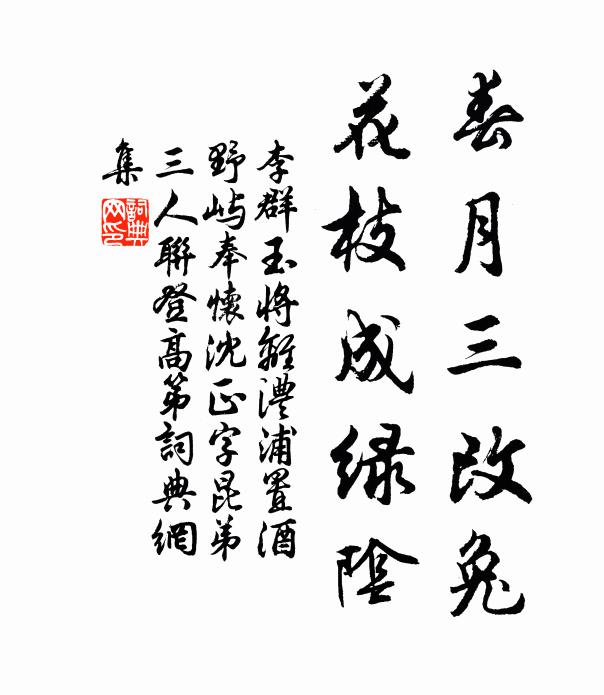 春月三改兔
花枝成绿陰
李群玉將離澧浦置酒
野嶼奉懷沈正字昆弟
三人聯登高第詞典網
集
詞典
网印